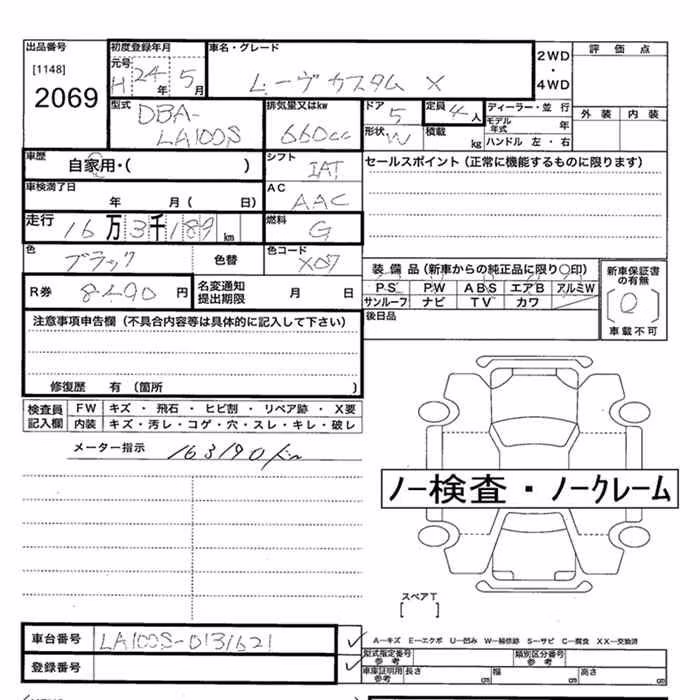 出品番号 初度登録年月 車名・グレード 2WD・4WD 評価点
[1148] 元号 H 24年 5月 ムーヴカスタム X
2069
外装 内装
型式 DBA-LA100S 排気量又はkw 660cc ドア 5 定員 4人 ディーラー・並行
モデル年式 年
形状 W 積載 kg ハンドル 左・右
車歴 自家用・( ) シフト IAT セールスポイント(正常に機能するものに限ります)
車検満了日 年 月( 日) AC AAC
走行 16万3千189km 燃料 G
色 ブラック 色替 色コード X07
装備品(新車からの純正品に限り○印) 新車保証書の有無
R券 8490円 名変通知提出期限 月 日
PS PW ABS エアB アルミW
サンルーフ ナビ TV カワ
車載不可
後日品
注意事項申告欄(不具合内容等は具体的に記入して下さい)
修復歴 有(箇所 )
検査員記入欄 FW キズ・飛石・ヒビ割・リペア跡・X要
内装 キズ・汚レ・コゲ・穴・スレ・キレ・破レ
メーター指示 163190km
ノー検査・ノークレーム
スペアT
[ ]
車台番号 LA100S-0131621
A-キズ E-エクボ U-凹み W-補修跡 S-サビ C-腐食 XX-交換済
登録番号
型式指定番号 参考 類別区分番号 参考
車庫証明用参考 長さ cm 幅 cm 高さ cm